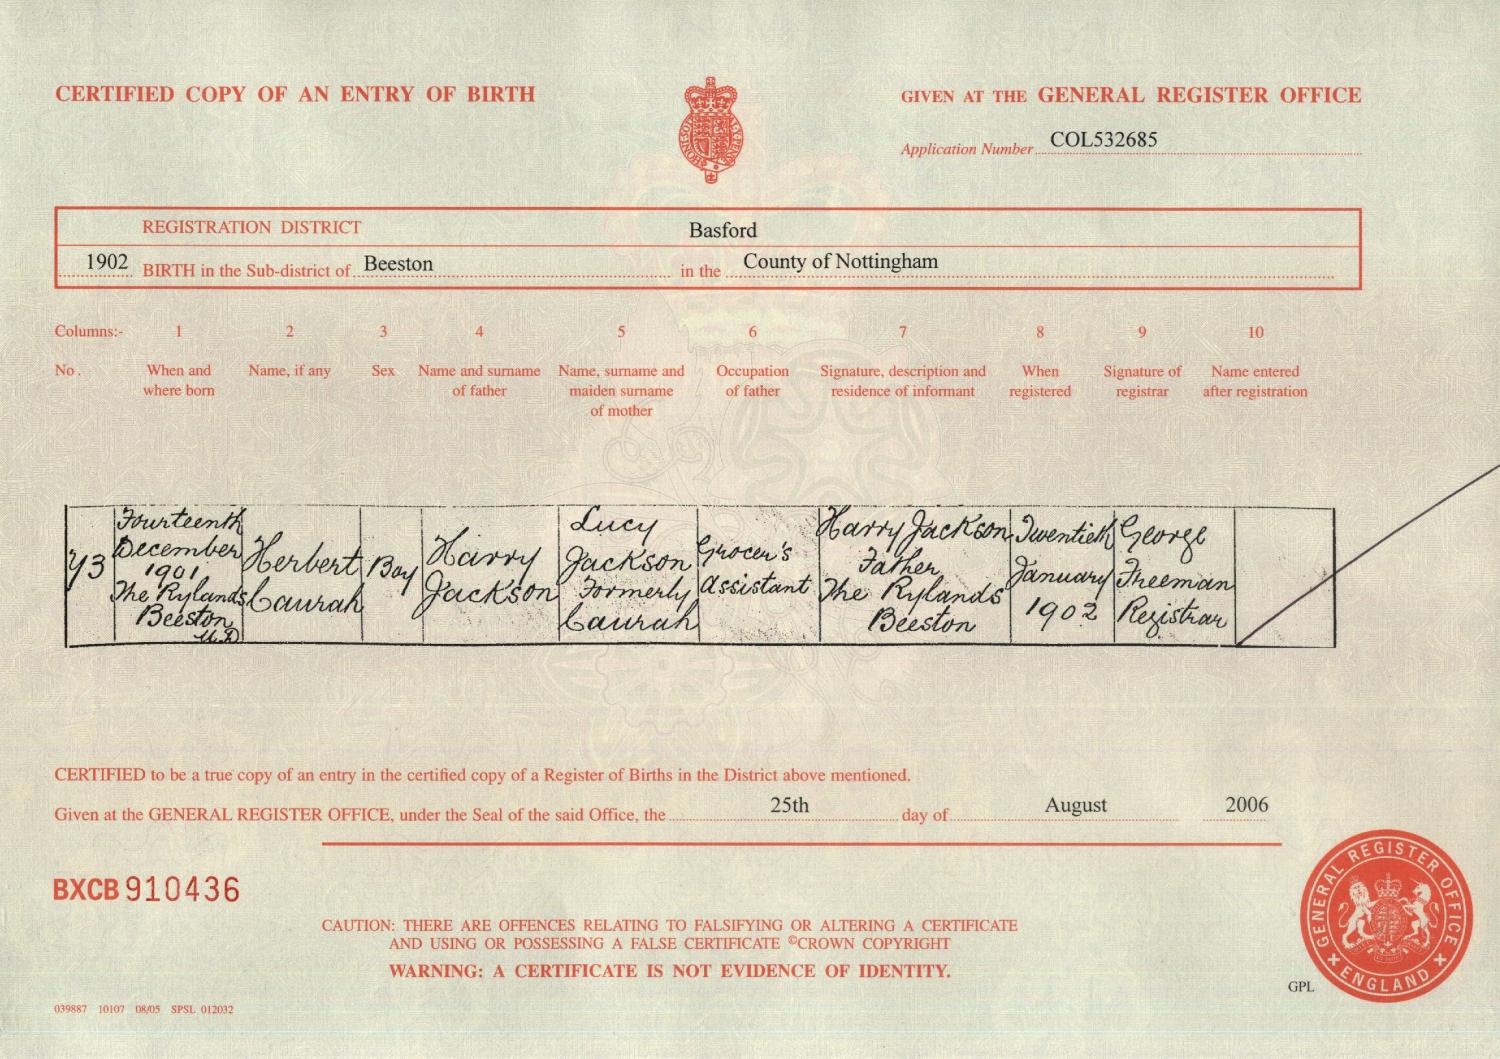 CERTIFIED COPY OF AN ENTRY OF BIRTH
GIVEN AT THE GENERAL REGISTER OFFICE
Application Number COL532685
REGISTRATION DISTRICT Basford
1902 BIRTH in the Sub-district of Beeston in the County of Nottingham
Columns:- 1 2 3 4 5 6 7 8 9 10
No. When and where born Name, if any Sex Name and surname of father Name, surname and maiden surname of mother Occupation of father Signature, description and residence of informant When registered Signature of registrar Name entered after registration
Fourteenth
December
1901
The Rylands
Beeston
U.D
Herbert
Caurah
Boy
Harry
Jackson
Lucy
Jackson
Formerly
Caurah
Grocer's
assistant
Harry Jackson
Father
The Rylands
Beeston
Twentieth
January
1902
George
Freeman
Registrar
CERTIFIED to be a true copy of an entry in the certified copy of a Register of Births in the District above mentioned.
Given at the GENERAL REGISTER OFFICE, under the Seal of the said Office, the 25th day of August 2006
BXCB 910436
CAUTION: THERE ARE OFFENCES RELATING TO FALSIFYING OR ALTERING A CERTIFICATE
AND USING OR POSSESSING A FALSE CERTIFICATE ©CROWN COPYRIGHT
WARNING: A CERTIFICATE IS NOT EVIDENCE OF IDENTITY.
GENERAL REGISTER OFFICE
ENGLAND
GPL
039887 10107 08/05 SPSL 012032